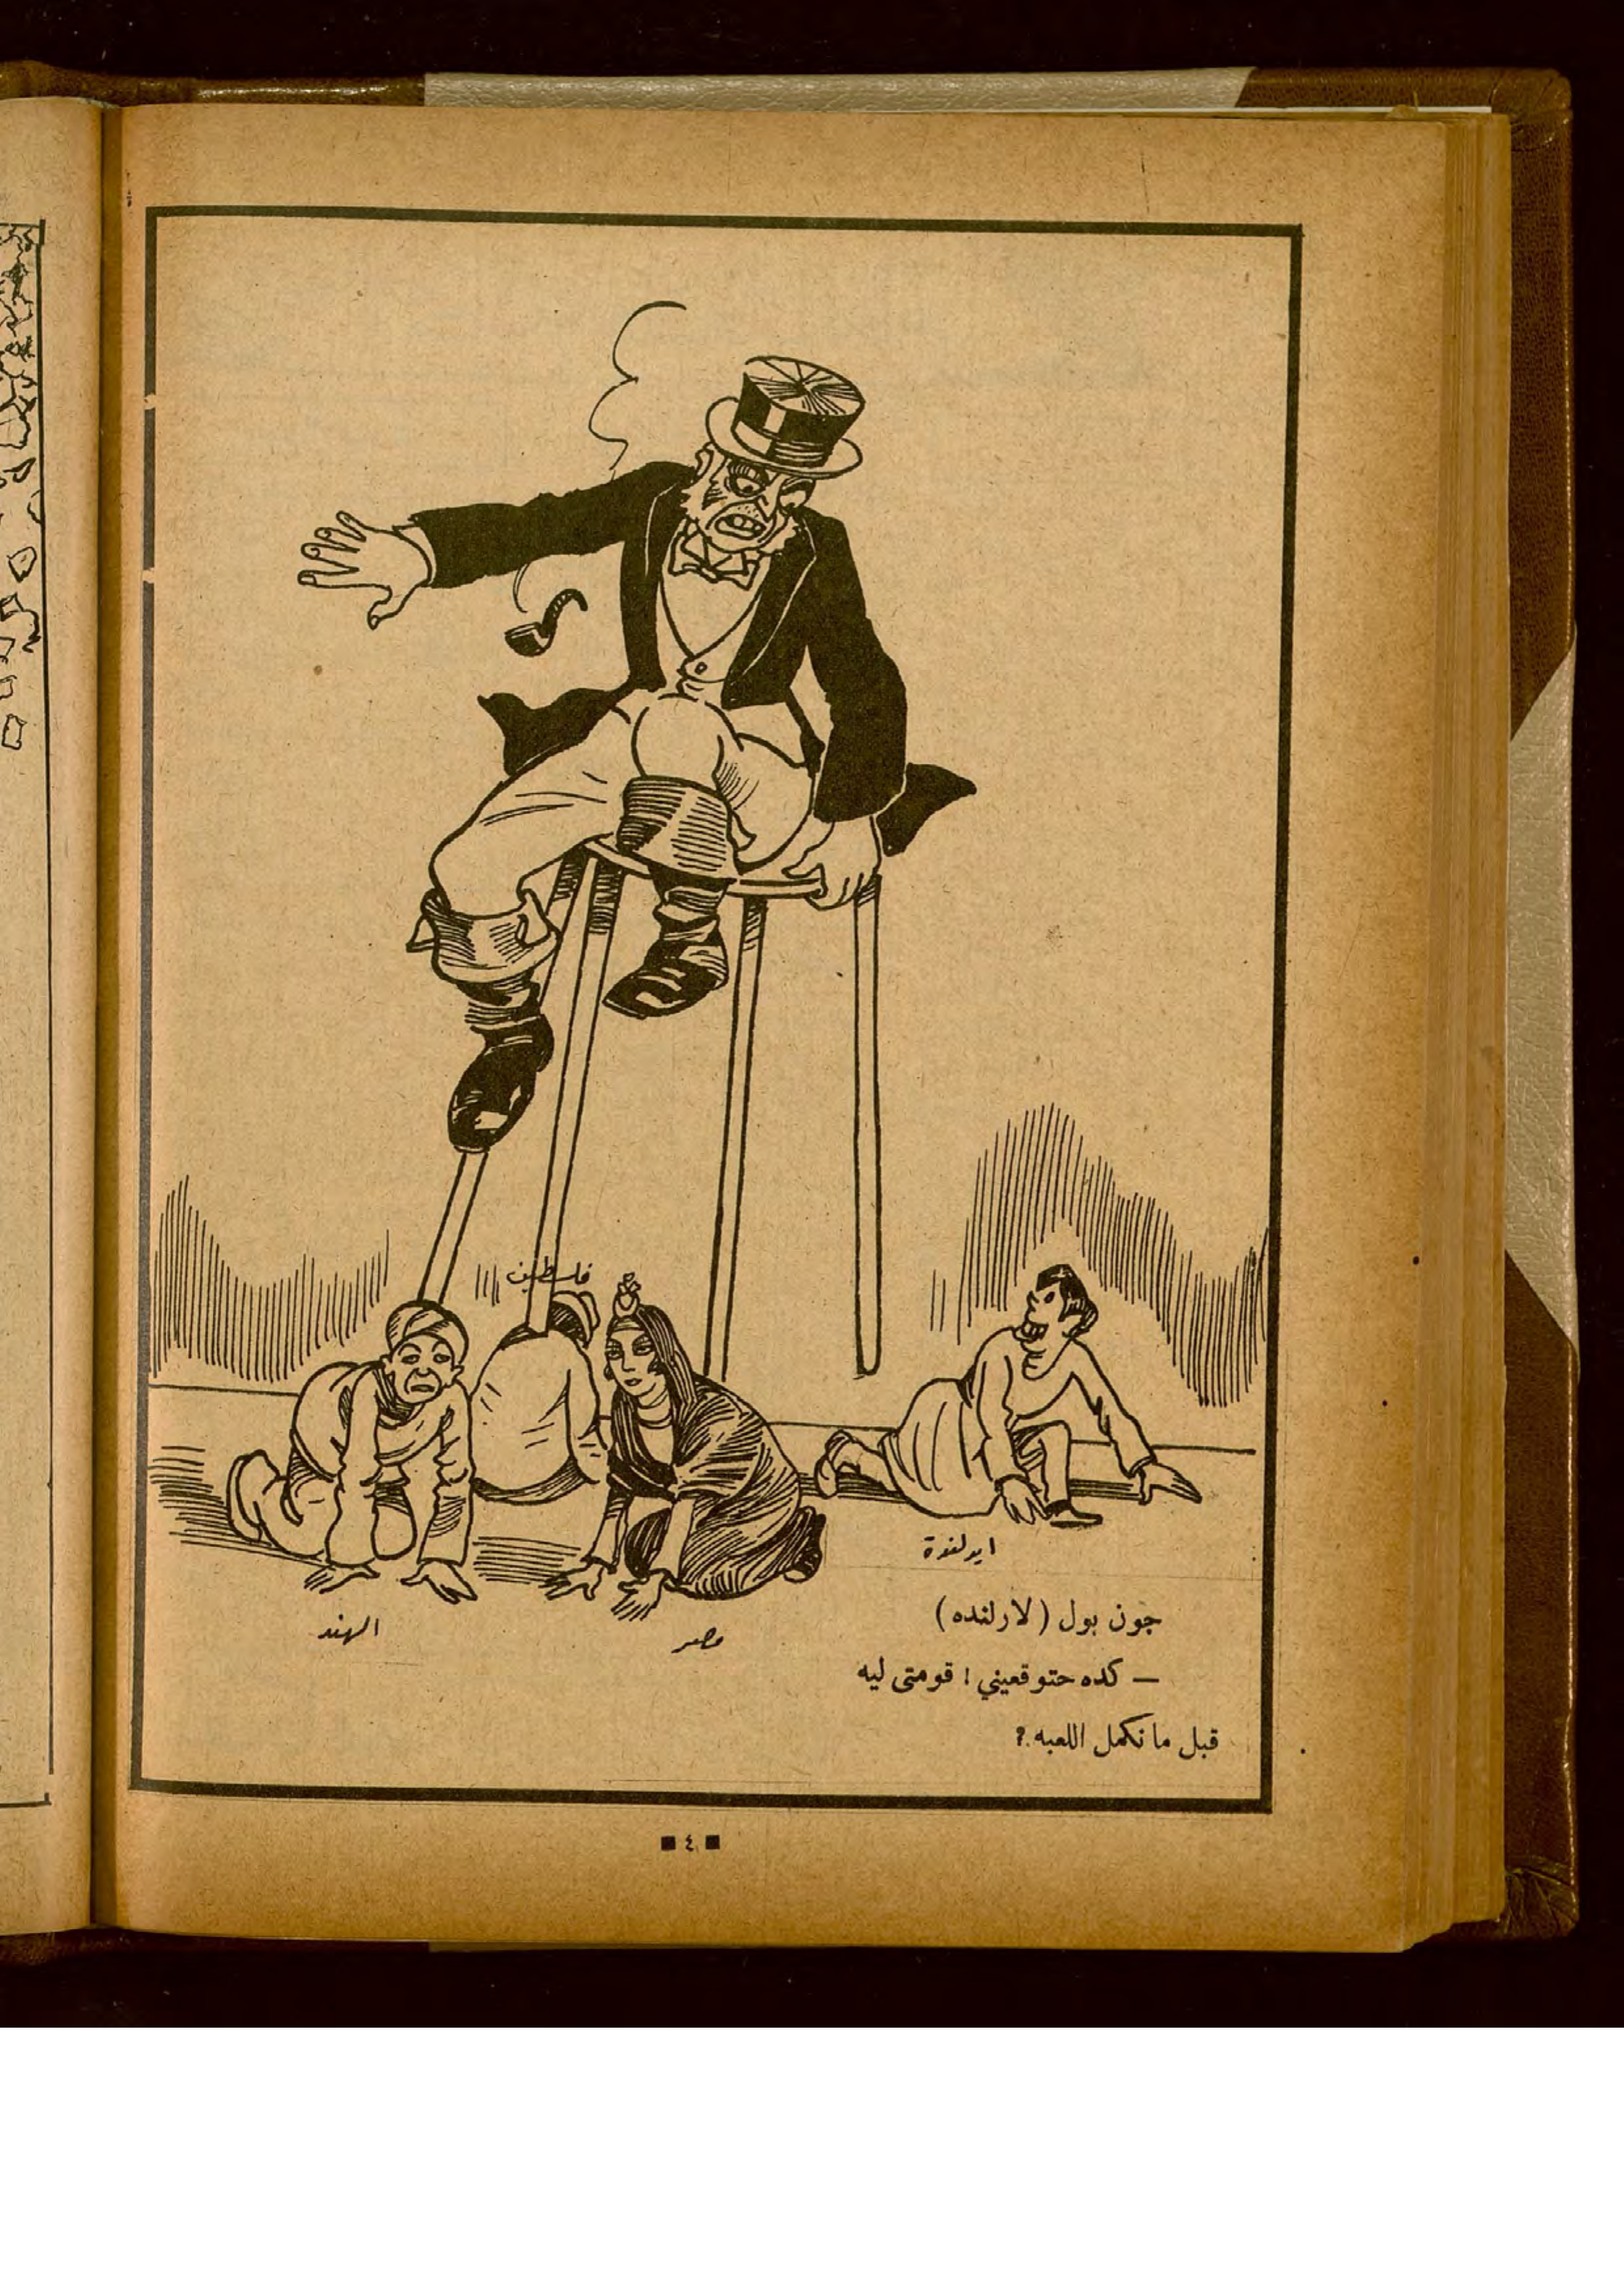 فلسطين
ايرلندة
الهند
مصر
جون بول (لارلنده)
— كده حتوقعيني ! قومتى ليه
قبل ما نكمل اللعبه ؟
٤